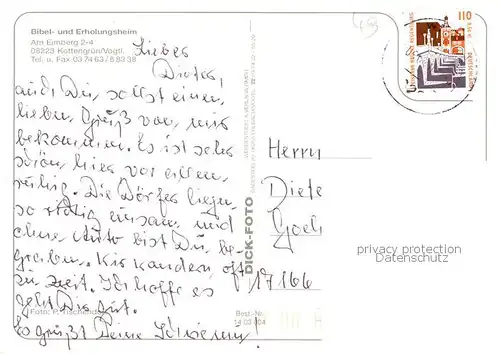 Bibel- und Erholungsheim
Am Eimberg 2-4
08223 Kottengrün/Vogtl.
Tel. u. Fax 03 74 63 / 8 82 38
Lieber
Dieter,
auch Du sollst einen
lieben Gruß von mir
bekommen. Es ist sehr
schön hier vor allem
ruhig. Die Dörfer liegen
so richtig einsam, und
ohne Auto bist Du be-
graben. Wir wandern oft
zu zeit. Ich hoffe es
geht Dir gut.
Es grüßt Deine Schwester!
Foto: P. Tischendorf
Best.-Nr.
DICK-FOTO
110
Herrn
Diete
Goeh
17166
privacy protection
Datenschutz